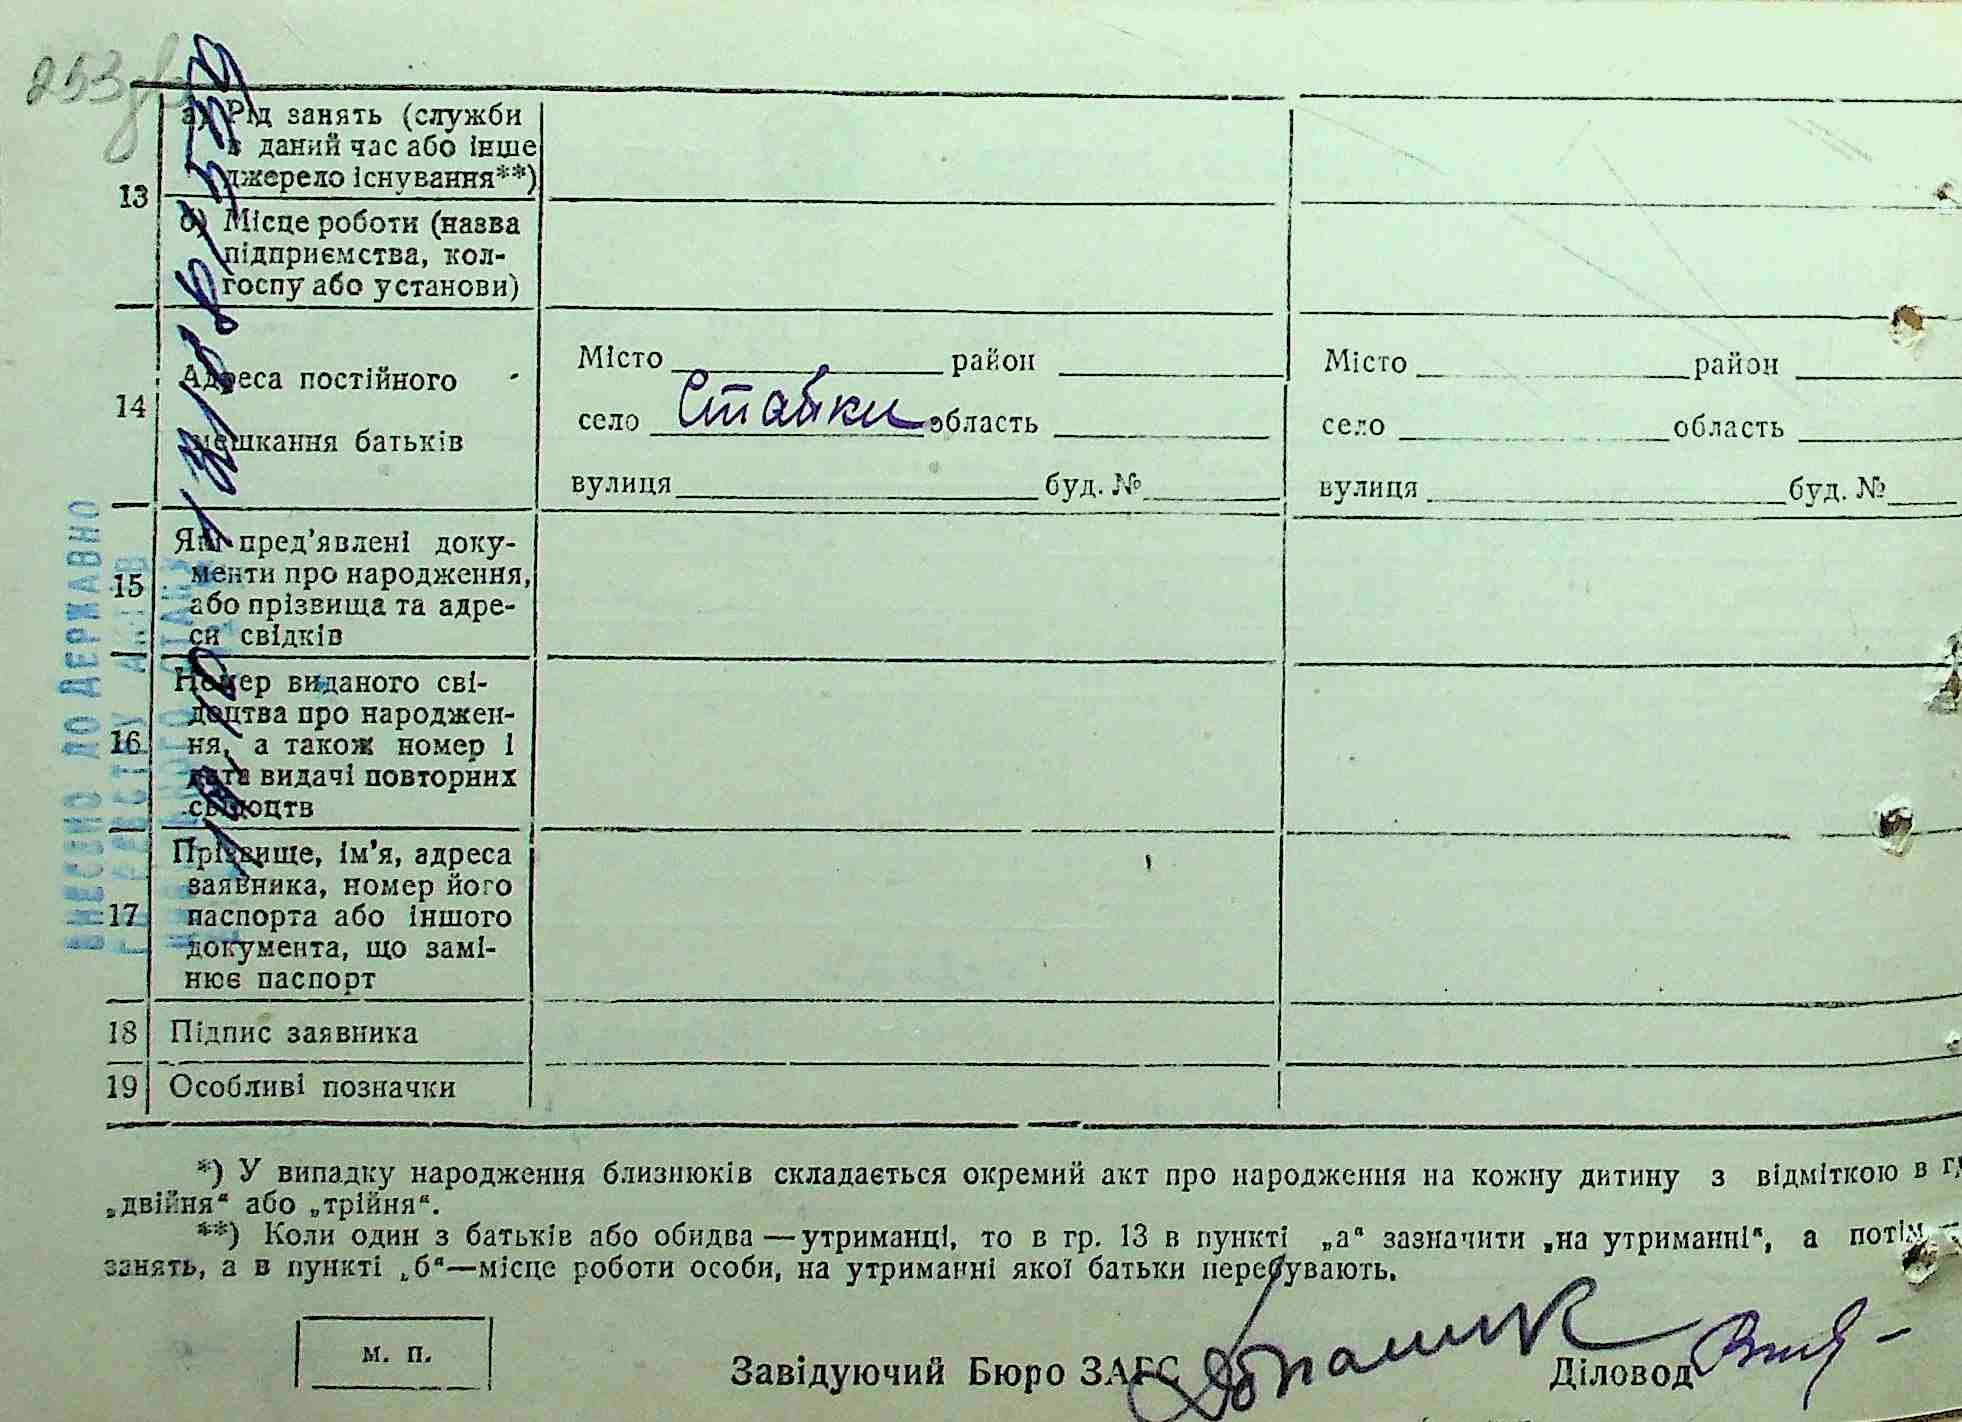 253
13
а) Рід занять (служби
в даний час або інше
джерело існування**)
б) Місце роботи (назва
підприємства, кол-
госпу або установи)
14
Адреса постійного
мешкання батьків
Місто район
село Стайки область
вулиця буд. №
Місто район
село область
вулиця буд. №
15
Які пред'явлені доку-
менти про народження,
або прізвища та адре-
си свідків
16
Номер виданого сві-
доцтва про народжен-
ня, а також номер і
дата видачі повторних
свідоцтв
17
Прізвище, ім'я, адреса
заявника, номер його
паспорта або іншого
документа, що замі-
нює паспорт
18 Підпис заявника
19 Особливі позначки
ВНЕСЕНО ДО ДЕРЖАВНО
*) У випадку народження близнюків складається окремий акт про народження на кожну дитину з відміткою в
„двійня“ або „трійня“.
**) Коли один з батьків або обидва — утриманці, то в гр. 13 в пункті „а“ зазначити „на утриманні“, а потім
занять, а в пункті „б“—місце роботи особи, на утриманні якої батьки перебувають.
м. п.
Завідуючий Бюро ЗАГС
Діловод